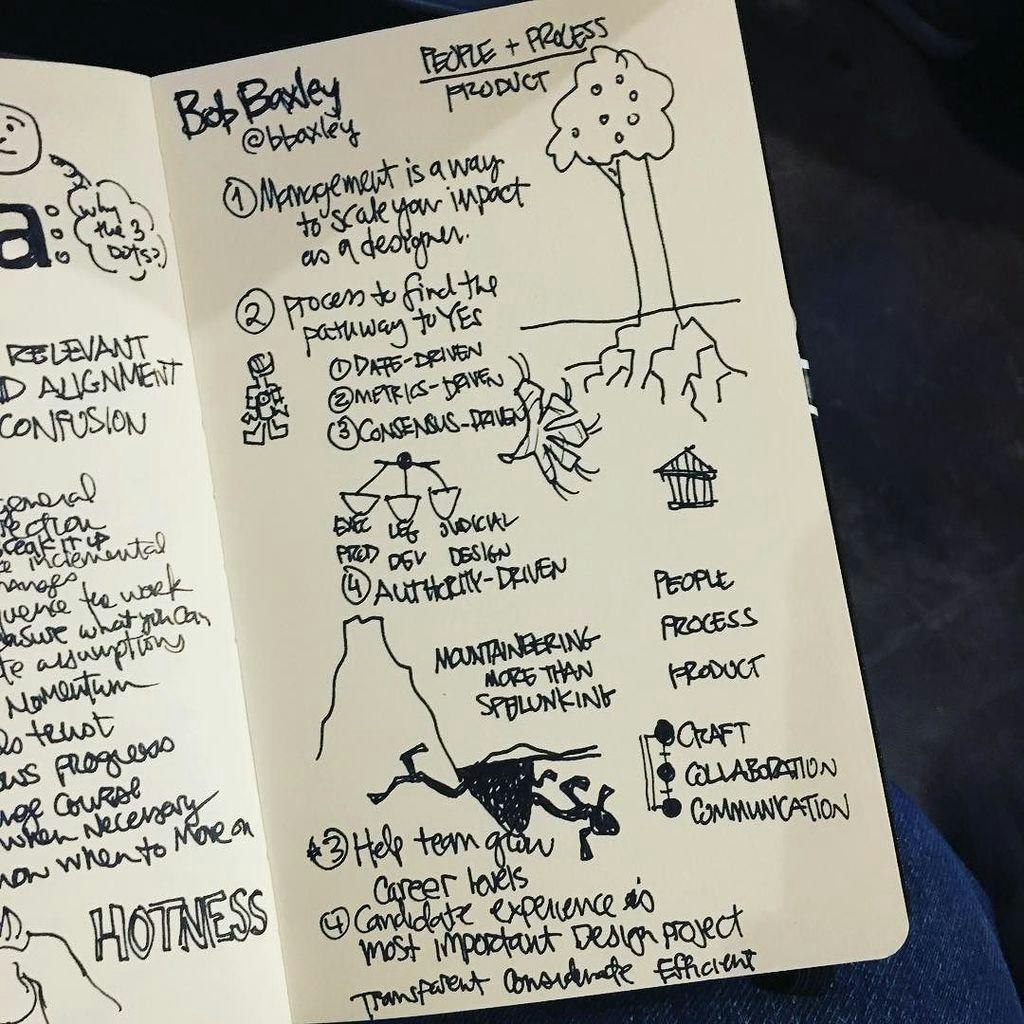 why
the 3
dots?
a:
RELEVANT
D ALIGNMENT
CONFUSION
general
ection
break it up
e incremental
hanges
quence the work
easure what you can
te assumptions
Momentum
ds trust
ows progress
nge course
when necessary
now when to Move on
HOTNESS
Bob Baxley
@bbaxley
PEOPLE + PROCESS
PRODUCT
① Management is a way
to scale your impact
as a designer.
② process to find the
pathway to YES
① DATE-DRIVEN
② METRICS-DRIVEN
③ CONSENSUS-DRIVEN
EXEC LEG JUDICIAL
PROD DEV DESIGN
④ AUTHORITY-DRIVEN
MOUNTAINEERING
MORE THAN
SPELUNKING
PEOPLE
PROCESS
PRODUCT
CRAFT
COLLABORATION
COMMUNICATION
③ Help team grow
career levels
④ Candidate experience is
most important Design project
Transparent Considerate Efficient